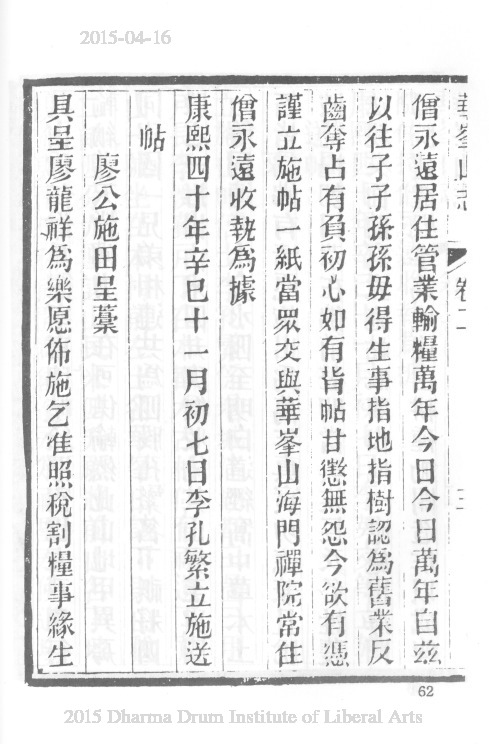 2015-04-16
華峯山志 卷二
僧永遠居住管業輸糧萬年今日今日萬年自玆
以往子子孫孫毋得生事指地指樹認爲舊業反
齒奪占有負初心如有背帖甘懲無怨今欲有憑
謹立施帖一紙當眾交與華峯山海門禪院常住
僧永遠收執爲據
康熙四十年辛巳十一月初七日李孔繁立施送
帖
廖公施田呈藁
具呈廖龍祥爲樂愿佈施乞准照稅割糧事緣生
62
2015 Dharma Drum Institute of Liberal Arts